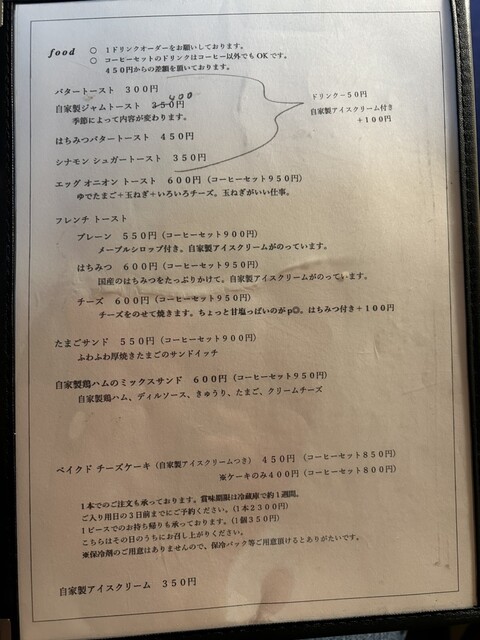 food
○ 1ドリンクオーダーをお願いしております。
○ コーヒーセットのドリンクはコーヒー以外でもOKです。
450円からの差額を頂いております。
バタートースト 300円
自家製ジャムトースト 350円 400
季節によって内容が変わります。
はちみつバタートースト 450円
シナモン シュガートースト 350円
ドリンクー50円
自家製アイスクリーム付き
+100円
エッグ オニオン トースト 600円（コーヒーセット950円）
ゆでたまご+玉ねぎ+いろいろチーズ。玉ねぎがいい仕事。
フレンチ トースト
プレーン 550円（コーヒーセット900円）
メープルシロップ付き。自家製アイスクリームがのっています。
はちみつ 600円（コーヒーセット950円）
国産のはちみつをたっぷりかけて。自家製アイスクリームがのっています。
チーズ 600円（コーヒーセット950円）
チーズをのせて焼きます。ちょっと甘塩っぱいのがp◎。はちみつ付き+100円
たまごサンド 550円（コーヒーセット900円）
ふわふわ厚焼きたまごのサンドイッチ
自家製鶏ハムのミックスサンド 600円（コーヒーセット950円）
自家製鶏ハム、ディルソース、きゅうり、たまご、クリームチーズ
ベイクド チーズケーキ（自家製アイスクリームつき） 450円 （コーヒーセット850円）
※ケーキのみ400円（コーヒーセット800円）
1本でのご注文も承っております。賞味期限は冷蔵庫で約1週間。
ご入り用日の3日前までにご予約ください。（1本2300円）
1ピースでのお持ち帰りも承っております。（1個350円）
こちらはその日のうちにお召し上がりください。
※保冷剤のご用意はありませんので、保冷パック等ご用意頂けるとありがたいです。
自家製アイスクリーム 350円